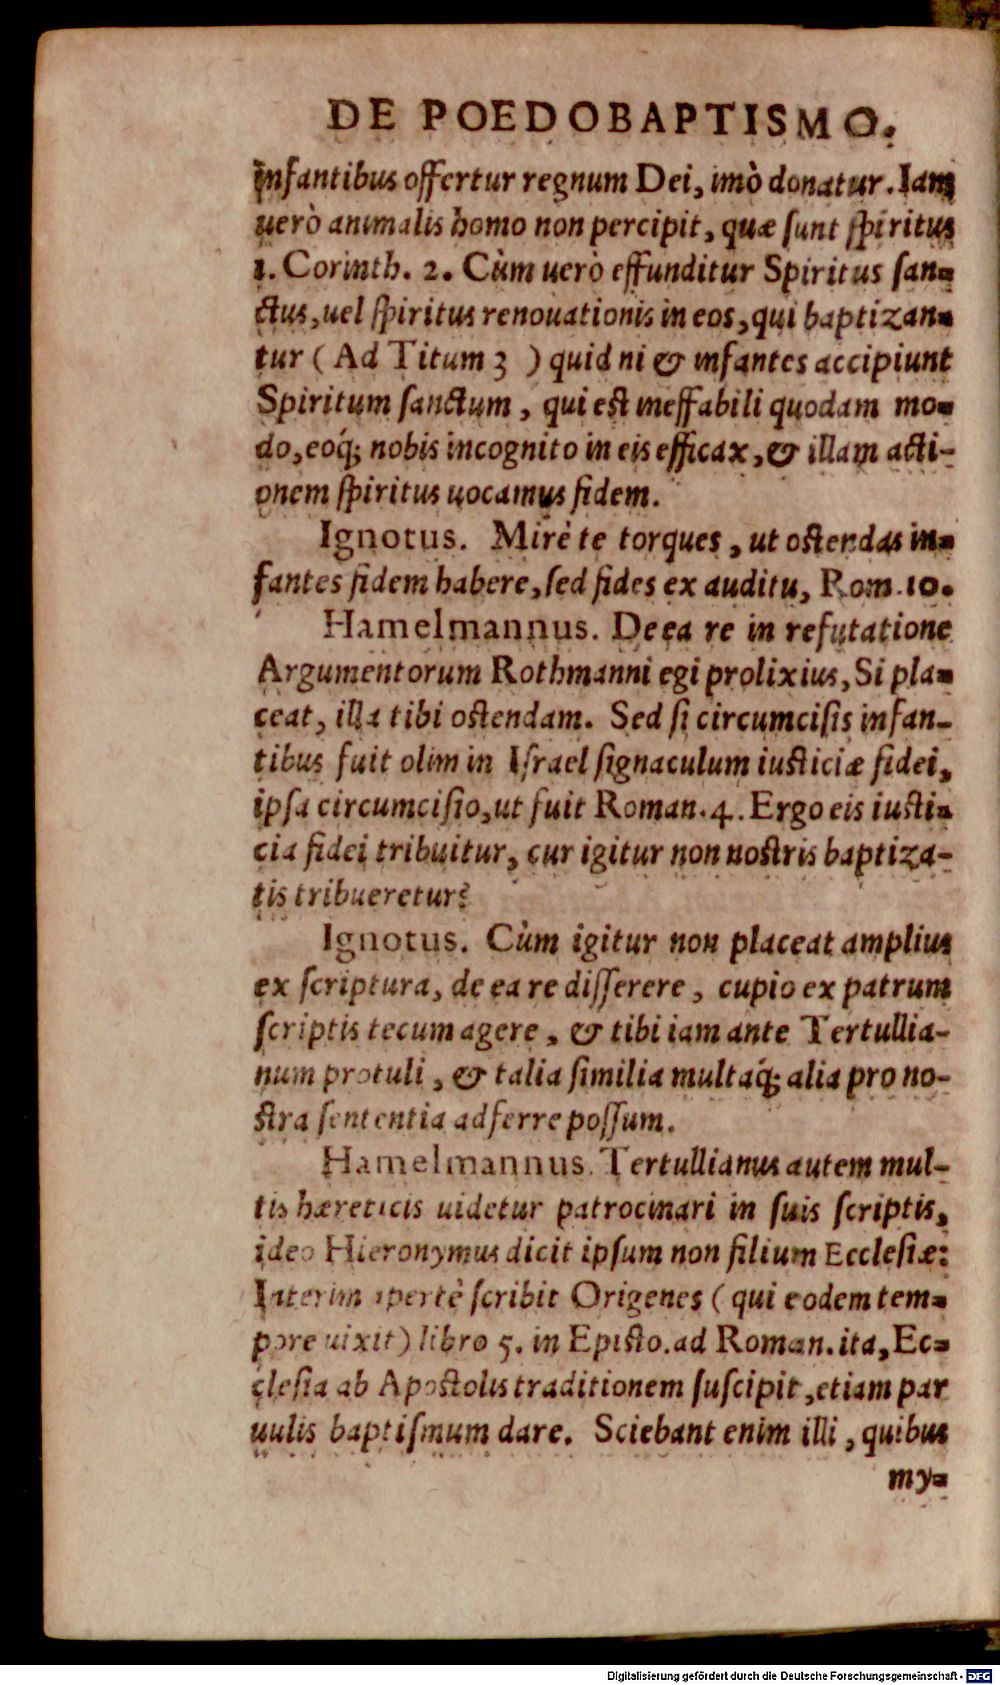 DE POEDOBAPTISMO.
infantibus offertur regnum Dei, imò donatur. Iam
uerò animalis homo non percipit, quæ ſunt ſpiritus
1. Corinth. 2. Cùm uerò effunditur Spiritus ſan-
ctus, uel ſpiritus renouationis in eos, qui baptizan-
tur ( Ad Titum 3 ) quid ni & infantes accipiunt
Spiritum ſanctum, qui est ineffabili quodam mo-
do, eoq́; nobis incognito in eis efficax, & illam acti-
onem ſpiritus uocamus fidem.
Ignotus. Mirè te torques, ut ostendas in-
fantes fidem habere, ſed fides ex auditu, Rom. 10.
Hamelmannus. De ea re in refutatione
Argumentorum Rothmanni egi prolixius, Si pla-
ceat, illa tibi ostendam. Sed ſi circumciſis infan-
tibus fuit olim in Iſrael ſignaculum iusticiæ fidei,
ipſa circumciſio, ut fuit Roman. 4. Ergo eis iusti-
cia fidei tribuitur, cur igitur non nostris baptiza-
tis tribueretur?
Ignotus. Cùm igitur non placeat amplius
ex ſcriptura, de ea re diſſerere, cupio ex patrum
ſcriptis tecum agere, & tibi iam ante Tertullia-
num protuli, & talia ſimilia multaq́; alia pro no-
stra ſententia adferre poſſum.
Hamelmannus. Tertullianus autem mul-
tis hæreticis uidetur patrocinari in ſuis ſcriptis,
ideo Hieronymus dicit ipſum non filium Eccleſiæ:
Interim apertè ſcribit Origenes ( qui eodem tem-
pore uixit) libro 5. in Episto. ad Roman. ita, Ec-
cleſia ab Apostolis traditionem ſuſcipit, etiam par
uulis baptiſmum dare. Sciebant enim illi, quibus
my-
Digitalisierung gefördert durch die Deutsche Forschungsgemeinschaft - DFG